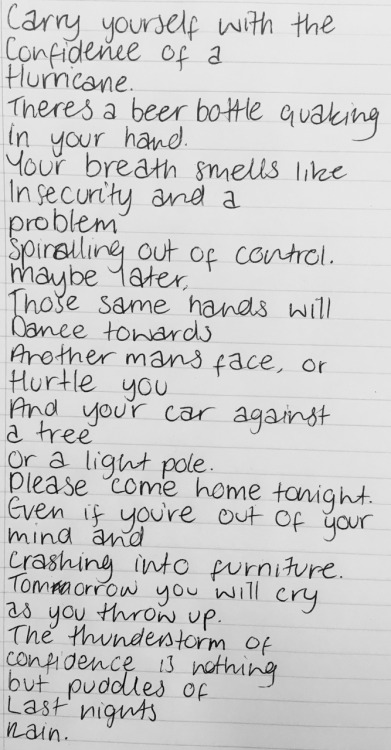 Carry yourself with the
Confidence of a
Hurricane.
Theres a beer bottle quaking
in your hand.
Your breath smells like
Insecurity and a
problem
Spiralling out of control.
maybe later,
Those same hands will
Dance towards
Another mans face, or
Hurtle you
And your car against
a tree
Or a light pole.
Please come home tonight.
Even if you're out of your
mind and
crashing into furniture.
Tommorrow you will cry
as you throw up.
The thunderstorm of
confidence is nothing
but puddles of
Last nights
Rain.